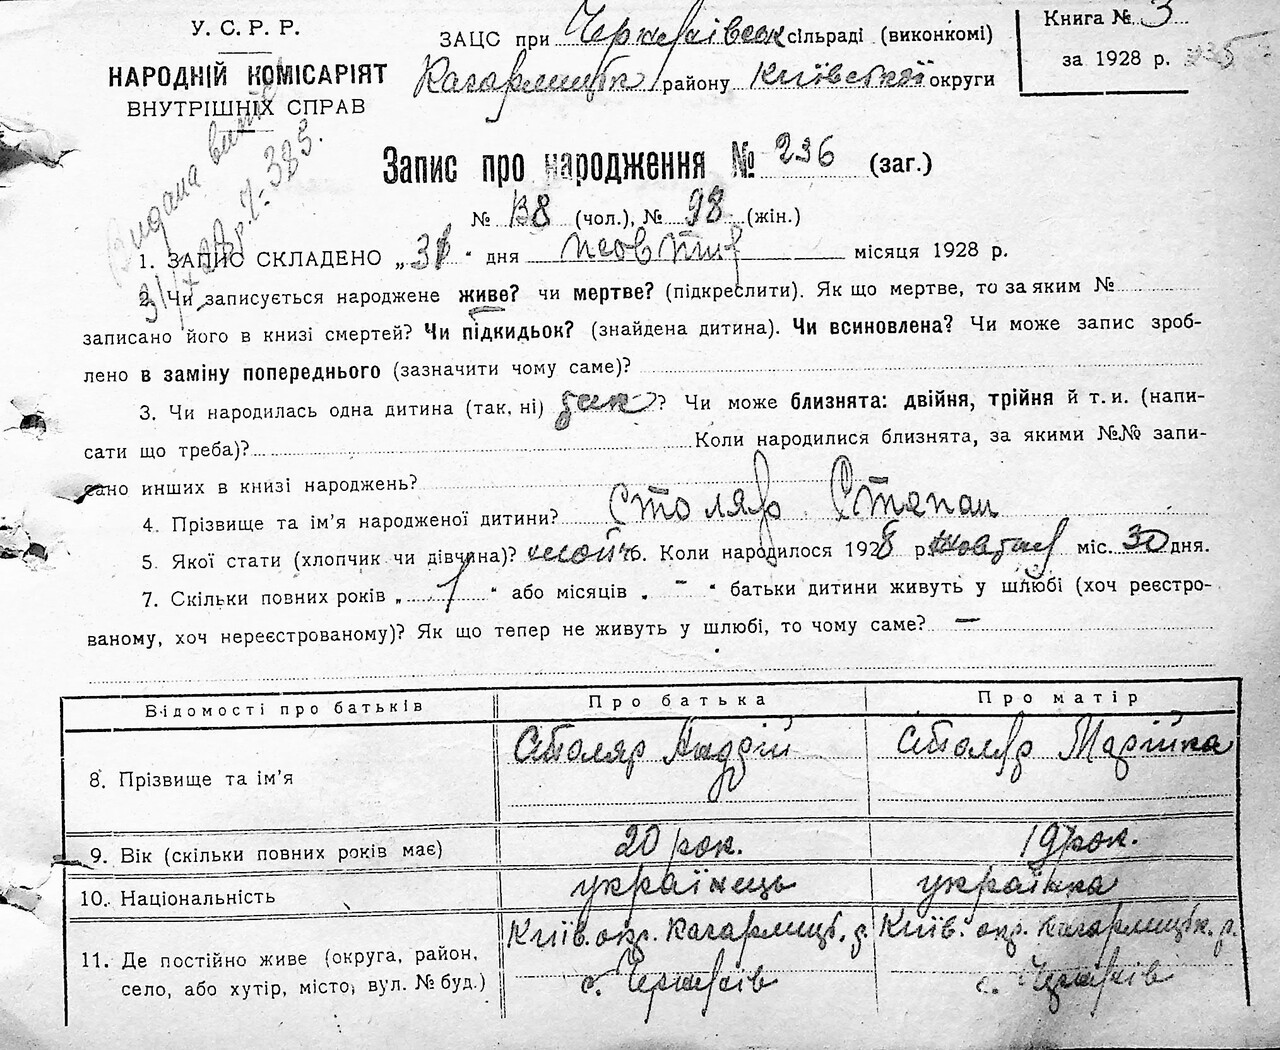 У. С. Р. Р.
НАРОДНІЙ КОМІСАРІЯТ
ВНУТРІШНІХ СПРАВ
ЗАЦС при Черняхівськ сільраді (виконкомі)
Кагарлицьк району Київської округи
Книга № 3
за 1928 р.
Видана
Запис про народження № 236 (заг.)
№ 138 (чол.), № 98 (жін.)
1. ЗАПИС СКЛАДЕНО „31“ дня жовтня місяця 1928 р.
2. Чи записується народжене живе? чи мертве? (підкреслити). Як що мертве, то за яким №
записано його в книзі смертей? Чи підкидьок? (знайдена дитина). Чи всиновлена? Чи може запис зроб-
лено в заміну попереднього (зазначити чому саме)?
3. Чи народилась одна дитина (так, ні) так? Чи може близнята: двійня, трійня й т. и. (напи-
сати що треба)? Коли народилися близнята, за якими №№ запи-
сано инших в книзі народжень?
4. Прізвище та ім’я народженої дитини? Столяр Степан
5. Якої стати (хлопчик чи дівчина)? Коли народилося 1928 р. жовтня міс. 30 дня.
7. Скільки повних років „ 1 “ або місяців „ - “ батьки дитини живуть у шлюбі (хоч реєстро-
ваному, хоч нереєстрованому)? Як що тепер не живуть у шлюбі, то чому саме? —
Відомості про батьків Про батька Про матір
8. Прізвище та ім’я Столяр Андрій Столяр Марійка
9. Вік (скільки повних років має) 20 рок. 19 рок.
10. Національність українець українка
11. Де постійно живе (округа, район, Київ. окр. Кагарлицьк. р. Київ. окр. Кагарлицьк. р.
село, або хутір, місто, вул. № буд.) с. Черняхів с. Черняхів